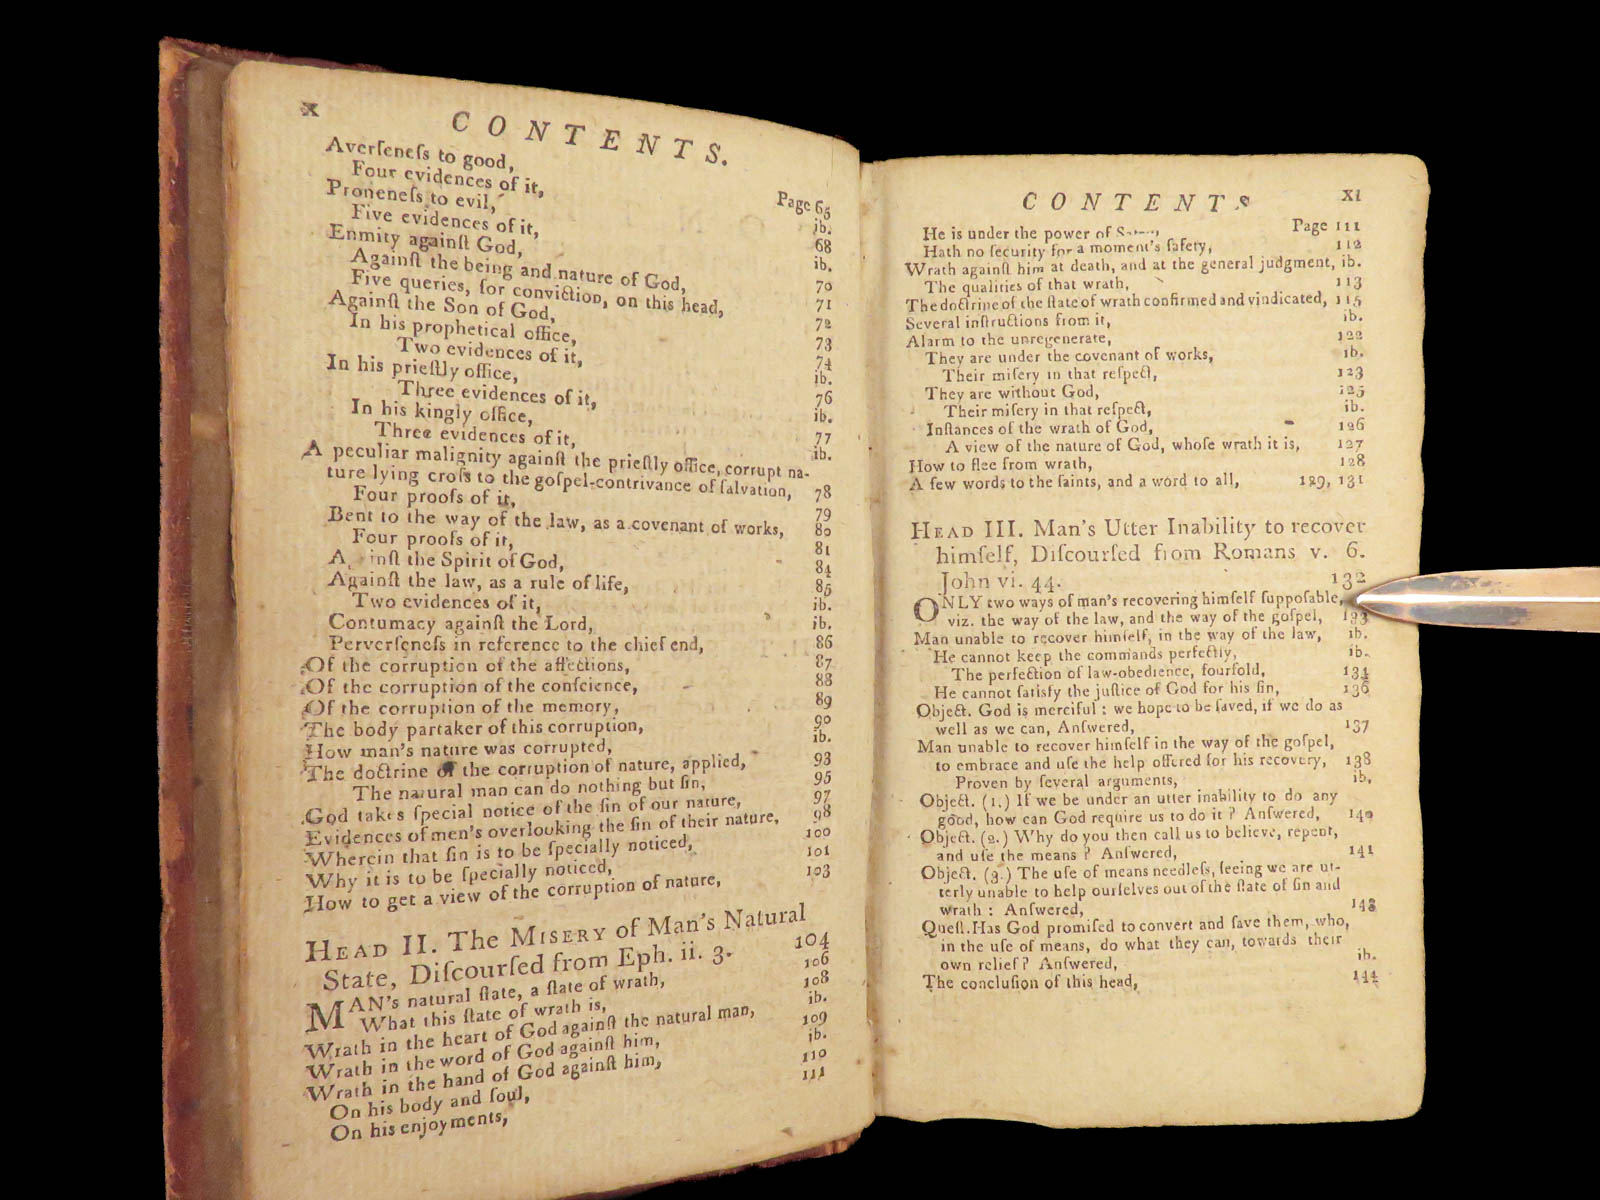 x
CONTENTS.
Averſeneſs to good, Page 65
Four evidences of it, ib.
Proneneſs to evil, 68
Five evidences of it, ib.
Enmity againſt God, 70
Againſt the being and nature of God, 71
Five queries, for conviction, on this head, 72
Againſt the Son of God, 73
In his prophetical office, 74
Two evidences of it, ib.
In his prieſtly office, 76
Three evidences of it, ib.
In his kingly office, 77
Three evidences of it, ib.
A peculiar malignity againſt the prieſtly office, corrupt na-
ture lying croſs to the goſpel-contrivance of ſalvation, 78
Four proofs of it, 79
Bent to the way of the law, as a covenant of works, 80
Four proofs of it, 81
A inſt the Spirit of God, 84
Againſt the law, as a rule of life, 85
Two evidences of it, ib.
Contumacy againſt the Lord, ib.
Perverſeneſs in reference to the chief end, 86
Of the corruption of the affections, 87
Of the corruption of the conſcience, 88
Of the corruption of the memory, 89
The body partaker of this corruption, 90
How man's nature was corrupted, ib.
The doctrine of the corruption of nature, applied, 93
The natural man can do nothing but ſin, 95
God takes ſpecial notice of the ſin of our nature, 97
Evidences of men's overlooking the ſin of their nature, 98
Wherein that ſin is to be ſpecially noticed, 100
Why it is to be ſpecially noticed, 101
How to get a view of the corruption of nature, 103
HEAD II. The MISERY of Man's Natural
State, Diſcourſed from Eph. ii. 3. 104
MAN's natural ſtate, a ſtate of wrath, 106
What this ſtate of wrath is, 108
Wrath in the heart of God againſt the natural man, ib.
Wrath in the word of God againſt him, 109
Wrath in the hand of God againſt him, ib.
On his body and ſoul, 110
On his enjoyments, 111
CONTENTS
xi
He is under the power of Page 111
Hath no ſecurity for a moment's ſafety, 112
Wrath againſt him at death, and at the general judgment, ib.
The qualities of that wrath, 113
The doctrine of the ſtate of wrath confirmed and vindicated, 115
Several inſtructions from it, ib.
Alarm to the unregenerate, 122
They are under the covenant of works, ib.
Their miſery in that reſpect, 123
They are without God, 125
Their miſery in that reſpect, ib.
Inſtances of the wrath of God, 126
A view of the nature of God, whoſe wrath it is, 127
How to flee from wrath, 128
A few words to the ſaints, and a word to all, 129, 131
HEAD III. Man's Utter Inability to recover
himſelf, Diſcourſed from Romans v. 6.
John vi. 44. 132
ONLY two ways of man's recovering himſelf ſuppoſable,
viz. the way of the law, and the way of the goſpel, 133
Man unable to recover himſelf, in the way of the law, ib.
He cannot keep the commands perfectly, ib.
The perfection of law-obedience, fourfold, 134
He cannot ſatisfy the juſtice of God for his ſin, 136
Object. God is merciful: we hope to be ſaved, if we do as
well as we can, Anſwered, 137
Man unable to recover himſelf in the way of the goſpel,
to embrace and uſe the help offered for his recovery, 138
Proven by ſeveral arguments, ib.
Object. (1.) If we be under an utter inability to do any
good, how can God require us to do it? Anſwered, 140
Object. (2.) Why do you then call us to believe, repent,
and uſe the means? Anſwered, 141
Object. (3.) The uſe of means needleſs, ſeeing we are ut-
terly unable to help ourſelves out of the ſtate of ſin and
wrath: Anſwered, 143
Queſt. Has God promiſed to convert and ſave them, who,
in the uſe of means, do what they can, towards their
own relief? Anſwered, ib.
The concluſion of this head, 144